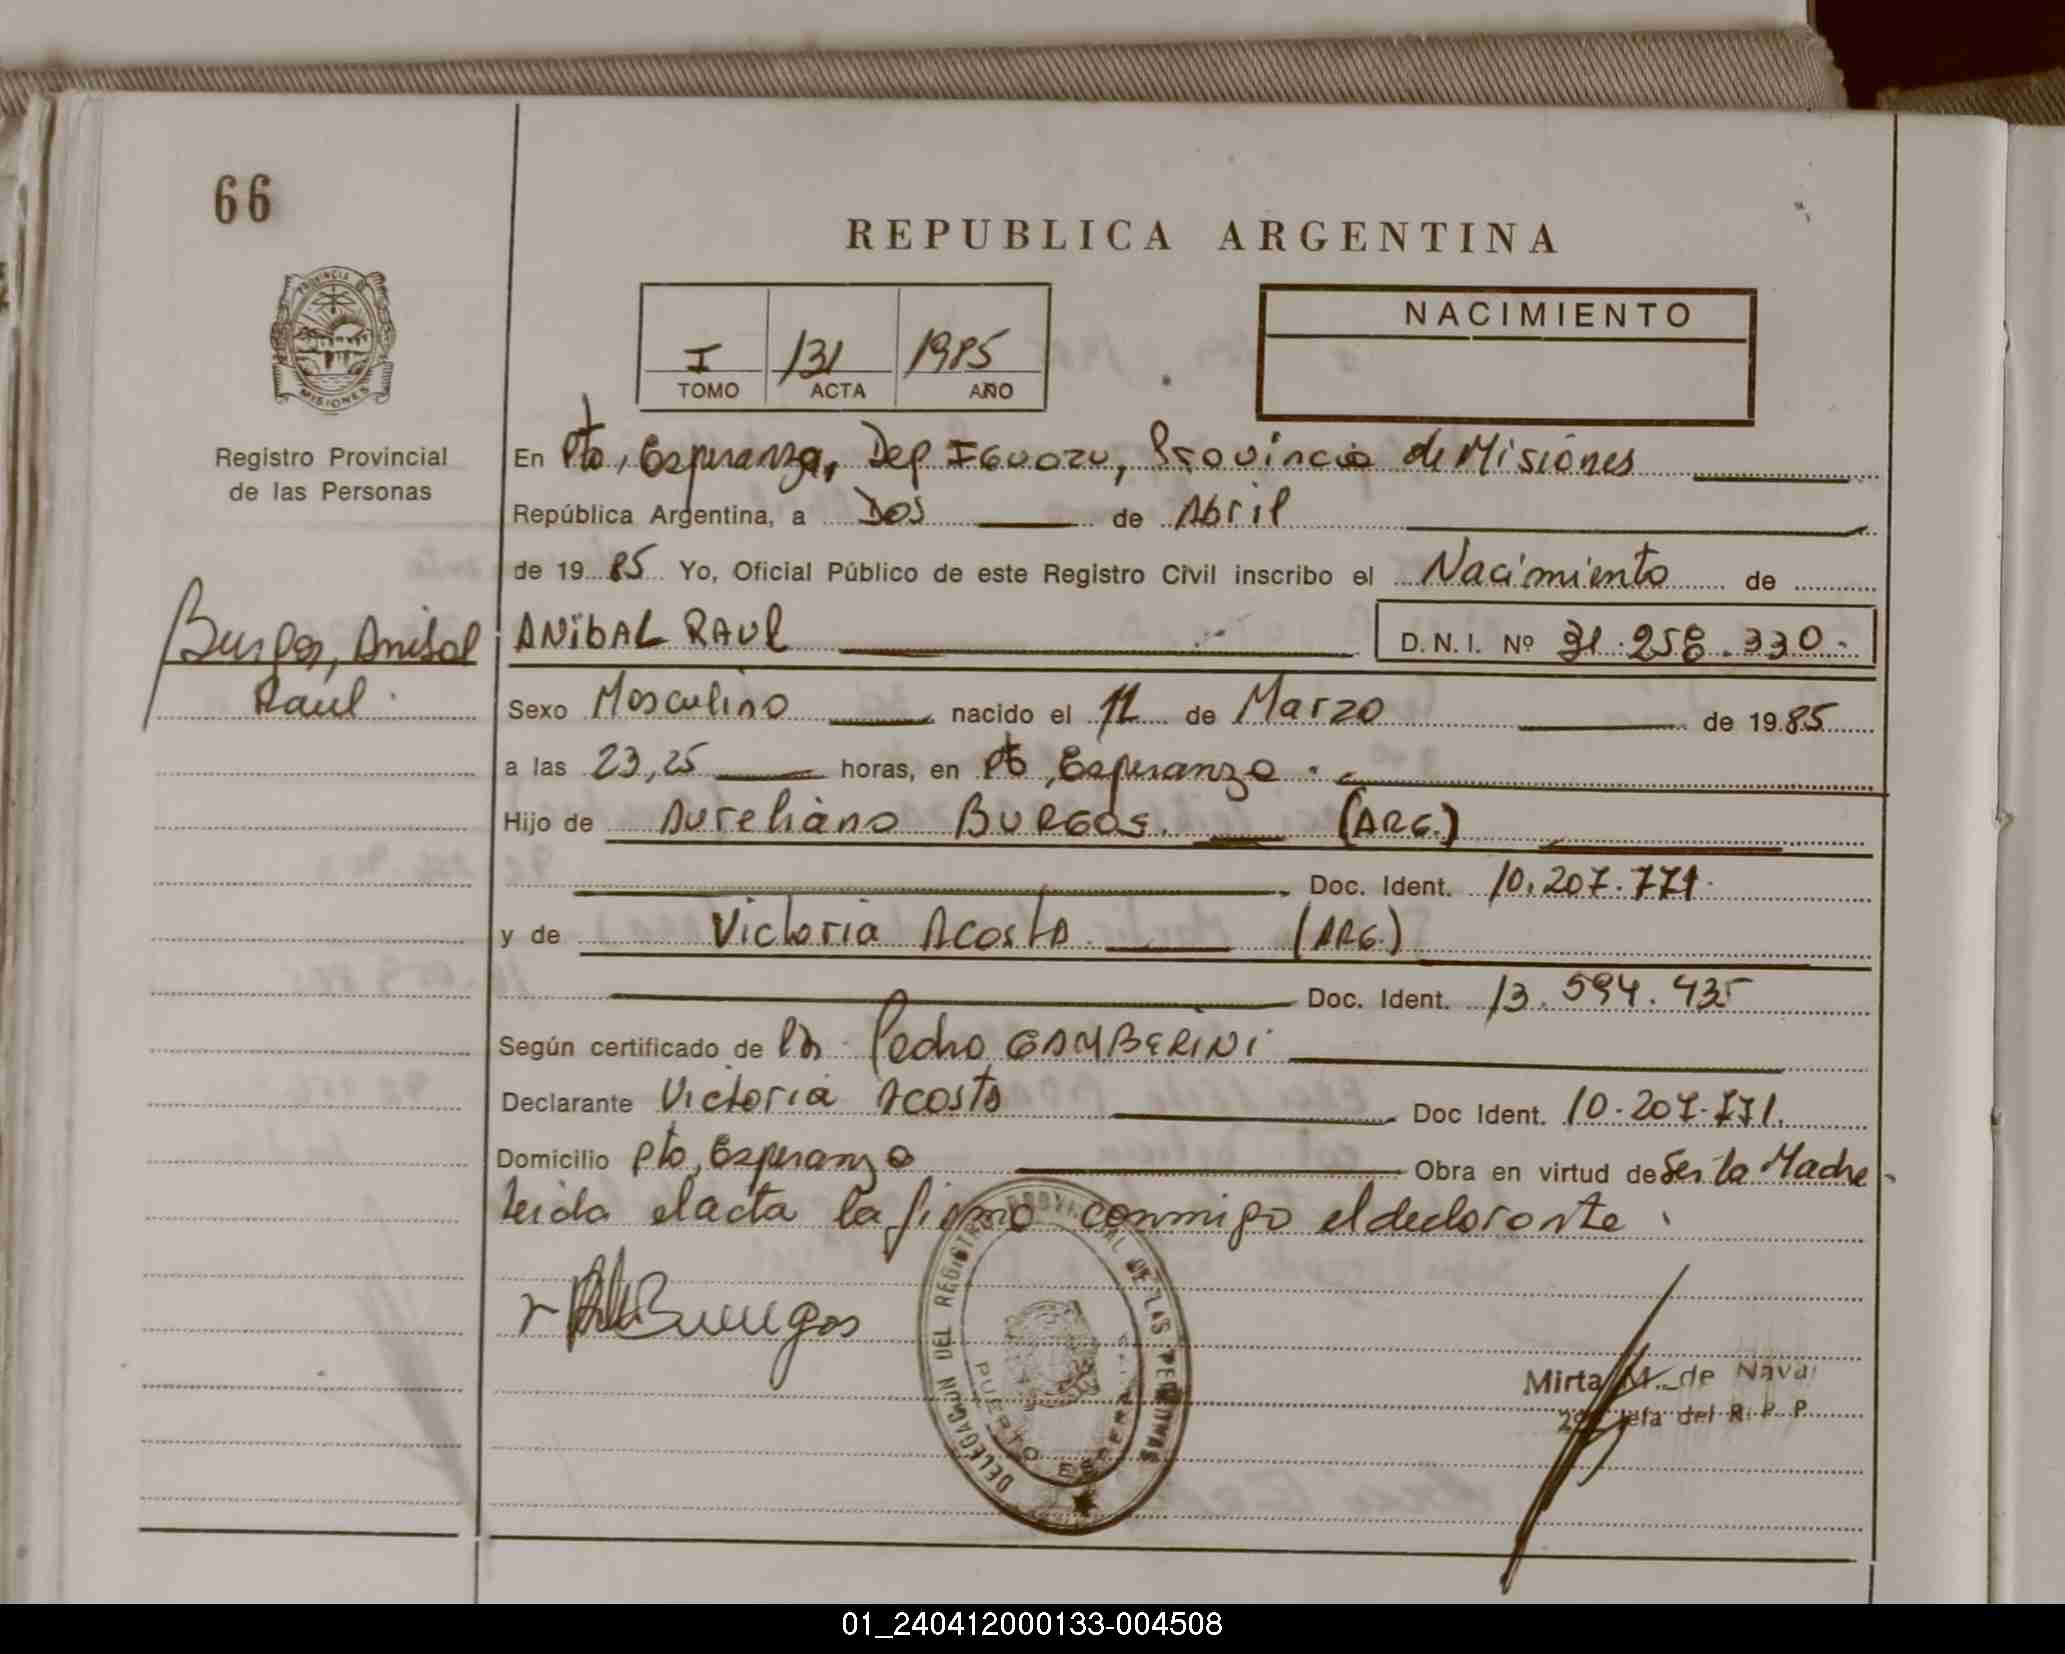 66
REPUBLICA ARGENTINA
PROVINCIA DE
MISIONES
Registro Provincial
de las Personas
I 131 1985
TOMO ACTA AÑO
NACIMIENTO
En Pto, Esperanza, Dep IGUOZU, Provincia de Misiones
República Argentina, a Dos de Abril
de 19 85 Yo, Oficial Público de este Registro Civil inscribo el Nacimiento de
Burgos, Anibal
Raul
ANibAL RAUl D. N. I. Nº 31.258.330.
Sexo Masculino nacido el 11 de Marzo de 19 85
a las 23,25 horas, en Pto, Esperanza.
Hijo de Aureliano BURGOS. (ARG.)
Doc. Ident. 10.207.771.
y de Victoria Acosta (ARG.)
Doc. Ident. 13.594.435
Según certificado de Pedro GAMBERiNi
Declarante Victoria Acosta Doc Ident. 10.207.771.
Domicilio Pto, Esperanza Obra en virtud de Ser la Madre
Leida el acta la firma conmigo el declarante.
Burgos
DELEGACION DEL REGISTRO PROVINCIAL DE LAS PERSONAS
PUERTO ESPERANZA
Mirta M. de Nava
Jefa del R. P. P.
01_240412000133-004508